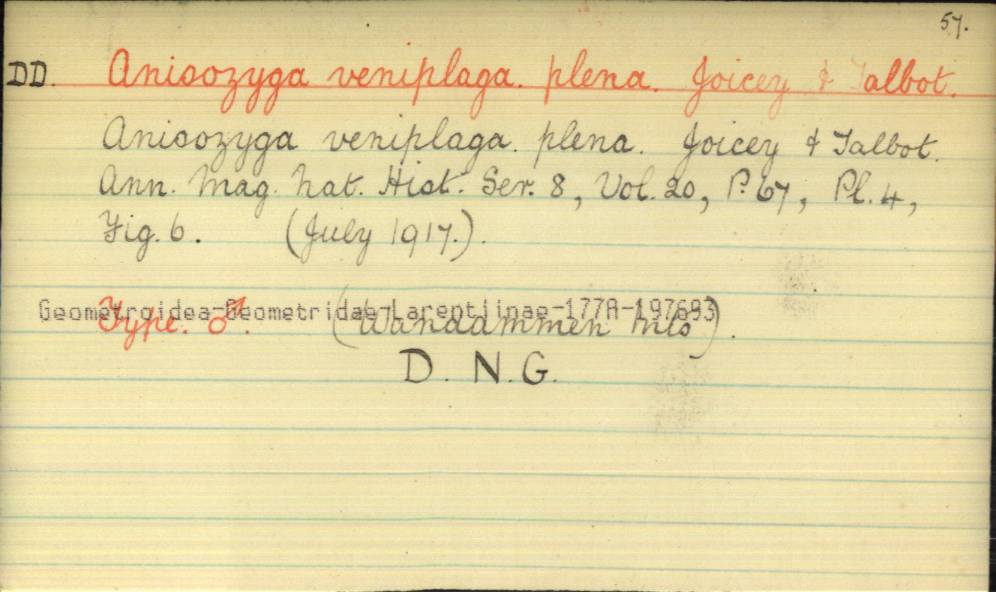 57.
DD. Anisozyga veniplaga. plena. Joicey & Talbot.
Anisozyga veniplaga. plena. Joicey & Talbot.
Ann. Mag. Nat. Hist. Ser. 8, Vol. 20, P. 67, Pl. 4,
Fig. 6. (July 1917.).
Geometroidea-Geometridae-Larentiinae-177A-197693
Type. ♂. (Wandammen Mts).
D. N.G.